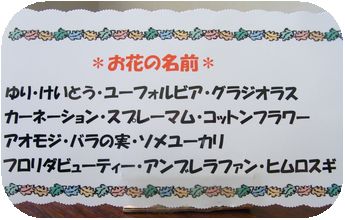 ＊お花の名前＊
ゆり・けいとう・ユーフォルビア・グラジオラス
カーネーション・スプレーマム・コットンフラワー
アオモジ・バラの実・ソメユーカリ
フロリダビューティー・アンブレラファン・ヒムロスギ